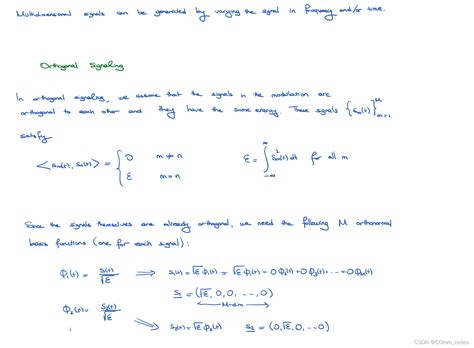 Multidimensional signals can be generated by varying the signal in frequency and/or time.
Orthogonal Signaling
In orthogonal signaling, we assume that the signals in the modulation are
orthogonal to each other and they have the same energy. These signals {sₘ(t)}ᴹₘ₌₁
satisfy
<sₘ(t), sₙ(t)> = { 0 m ≠ n
ℰ m = n
ℰ = ∫_{-∞}^{∞} sₘ²(t) dt for all m
Since the signals themselves are already orthogonal, we need the following M orthonormal
basis functions (one for each signal):
φ₁(t) = s₁(t)/√ℰ ⟹ s₁(t) = √ℰ φ₁(t) = √ℰ φ₁(t) + 0 φ₂(t) + 0 φ₃(t) + ... + 0 φₘ(t)
s₁ = (√ℰ, 0, 0, ..., 0)
M-dim
φ₂(t) = s₂(t)/√ℰ ⟹ s₂(t) = √ℰ φ₂(t) s₂ = (0, √ℰ, 0, ..., 0)
CSDN @C0mm_notes